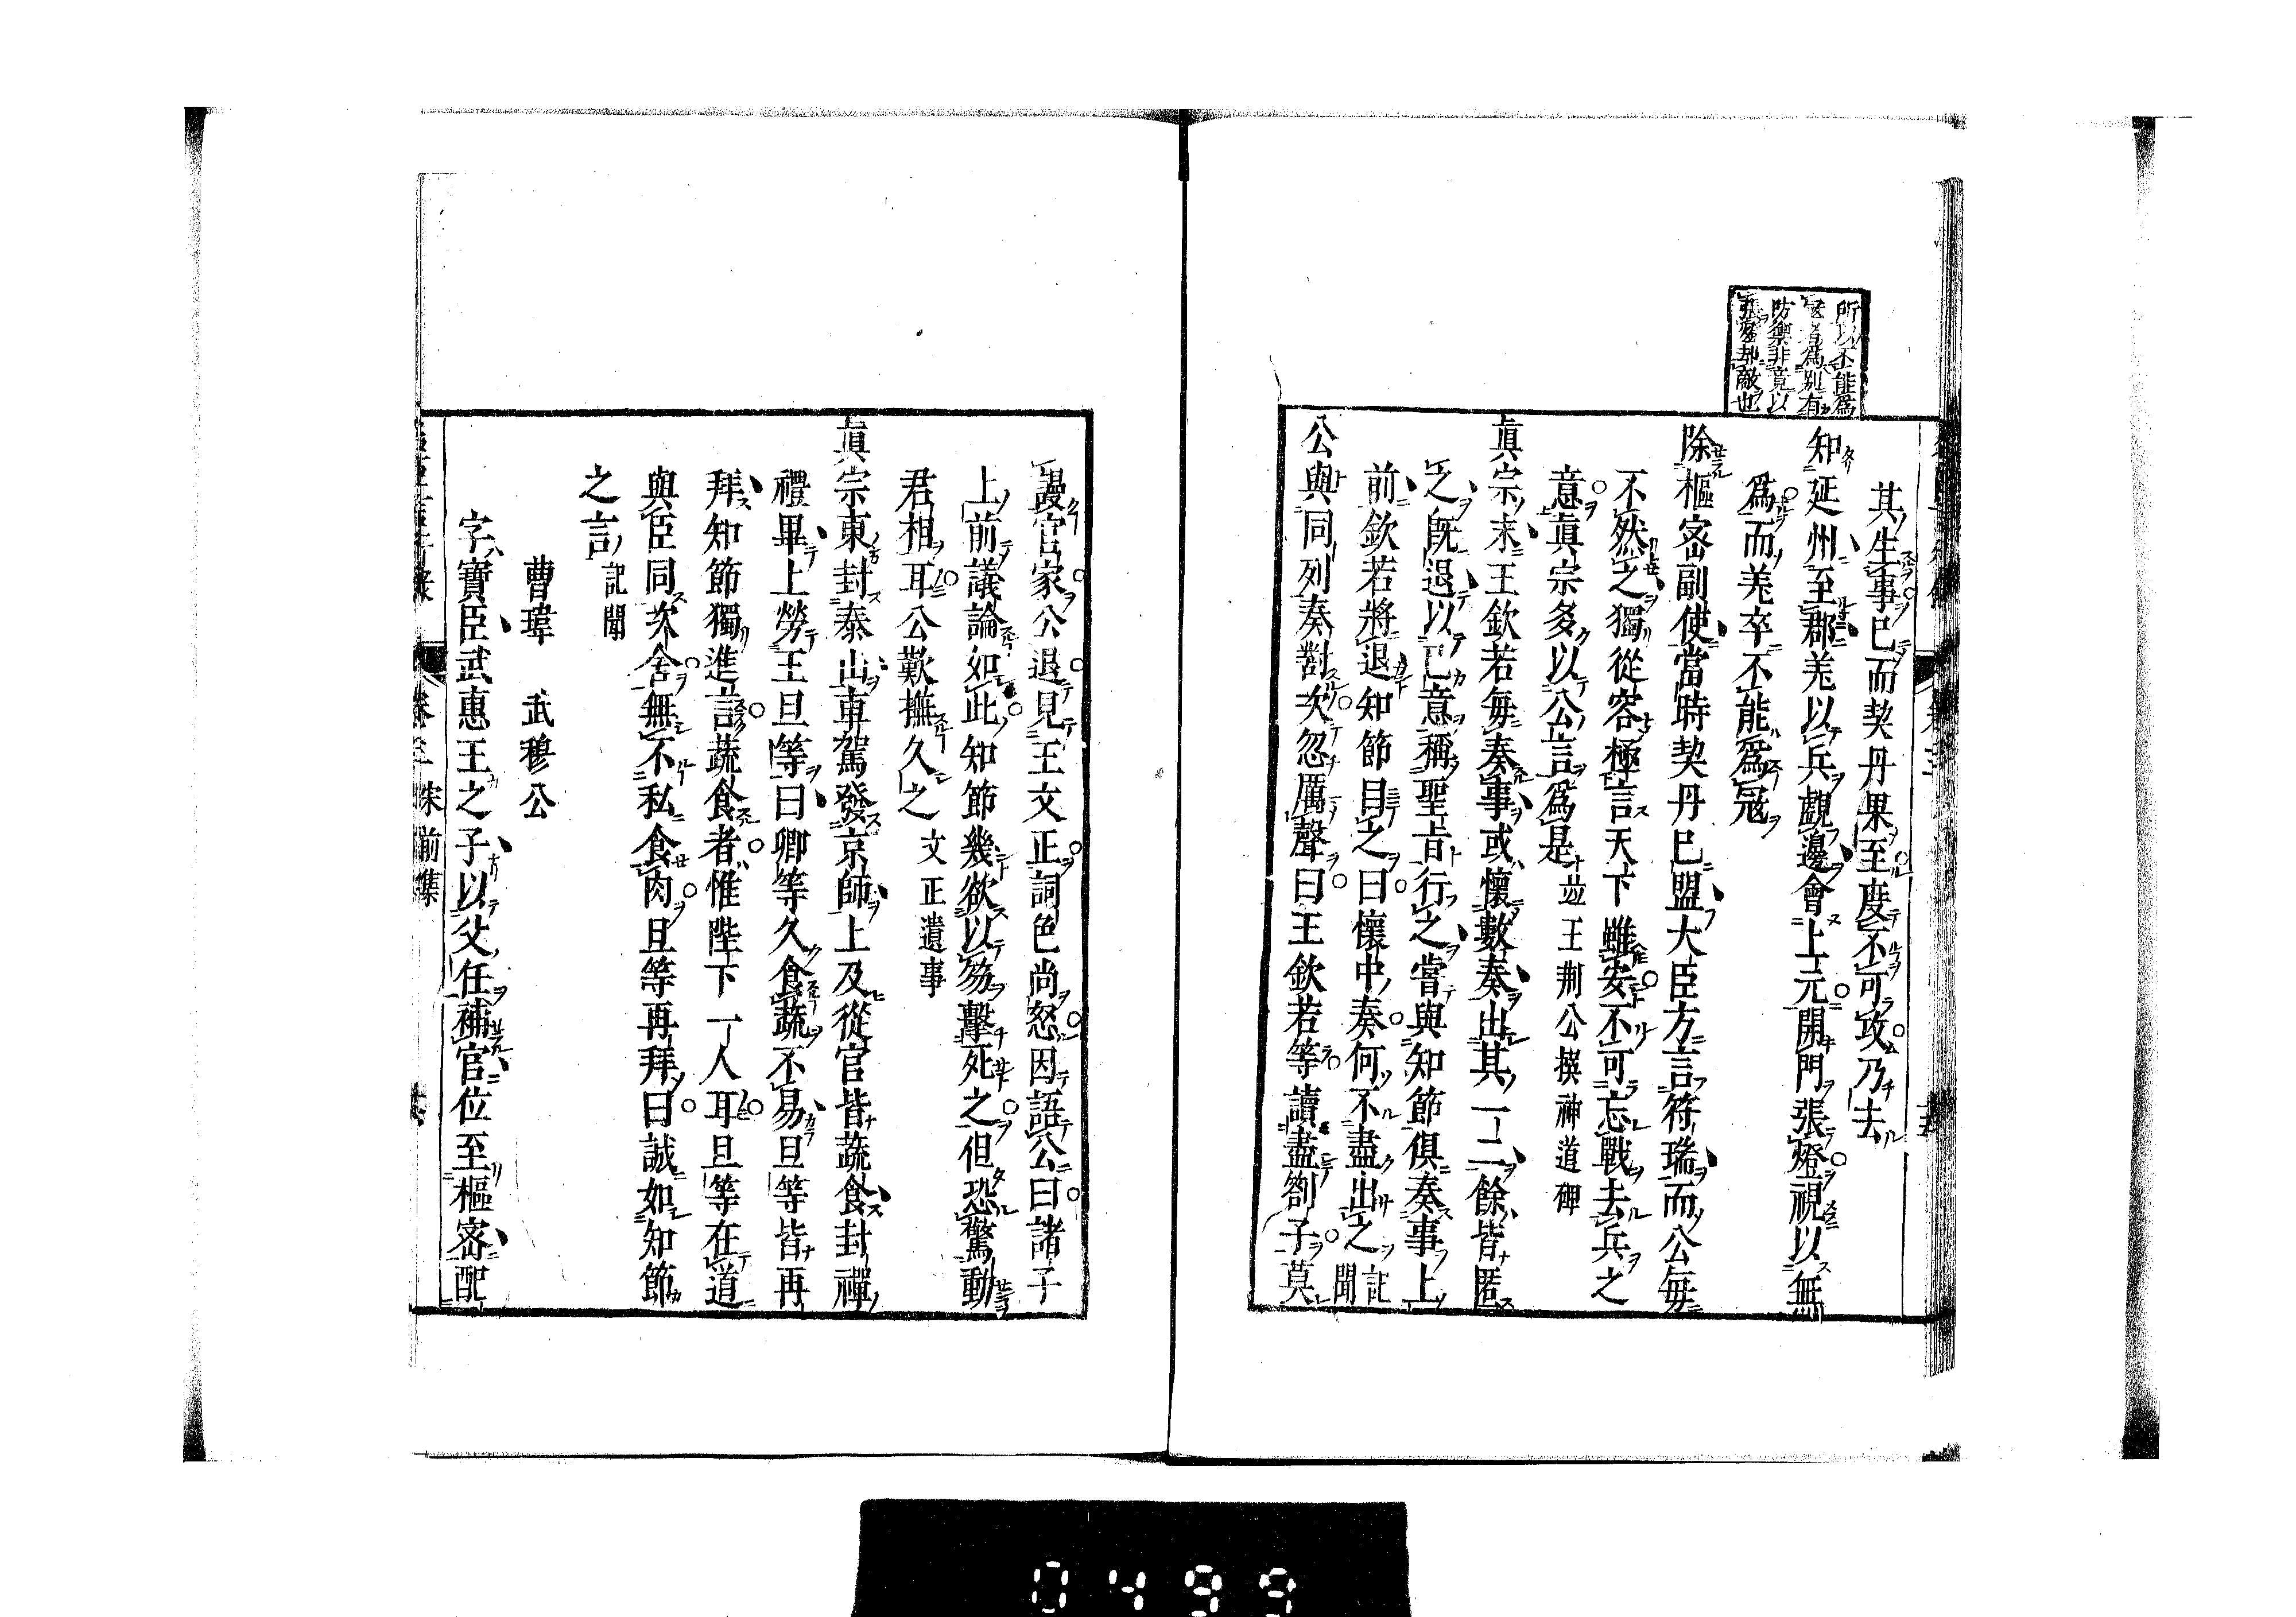 所以不能為
寇者為別有
防禦非竟以
張燈却敵也
其生事已而契丹果至度不可攻乃去
知延州至郡羌以兵覷邊會上元開門張燈視以無
為而羌卒不能為寇
除樞密副使當時契丹已盟大臣方言符瑞而公每
不然之獨從容極言天下雖安不可忘戰去兵之
意真宗多以公言為是 並王荊公撰神道碑
眞宗末王欽若每奏事或懷數奏出其一二餘皆匿
之既退以已意稱聖旨行之嘗與知節俱奏事上
前欽若將退知節目之曰懷中奏何不盡出之 記聞
公與同列奏對次忽厲聲曰王欽若等讀盡劄子莫
謾官家公退見王文正詞色尚怒因語公曰諸子
上前議論如此知節幾欲以笏擊死之但恐驚動
君相耳公歎撫久之 文正遺事
眞宗東封泰山車駕發京師上及從官皆蔬食封禪
禮畢上勞王旦等曰卿等久食蔬不易旦等皆再
拜知節獨進言蔬食者惟陛下一人耳旦等在道
與臣同次舍無不私食肉旦等再拜曰誠如知節
之言 記聞
曹瑋 武穆公
字寶臣武惠王之子以父任補官位至樞密配
卷三 宋前集
0499